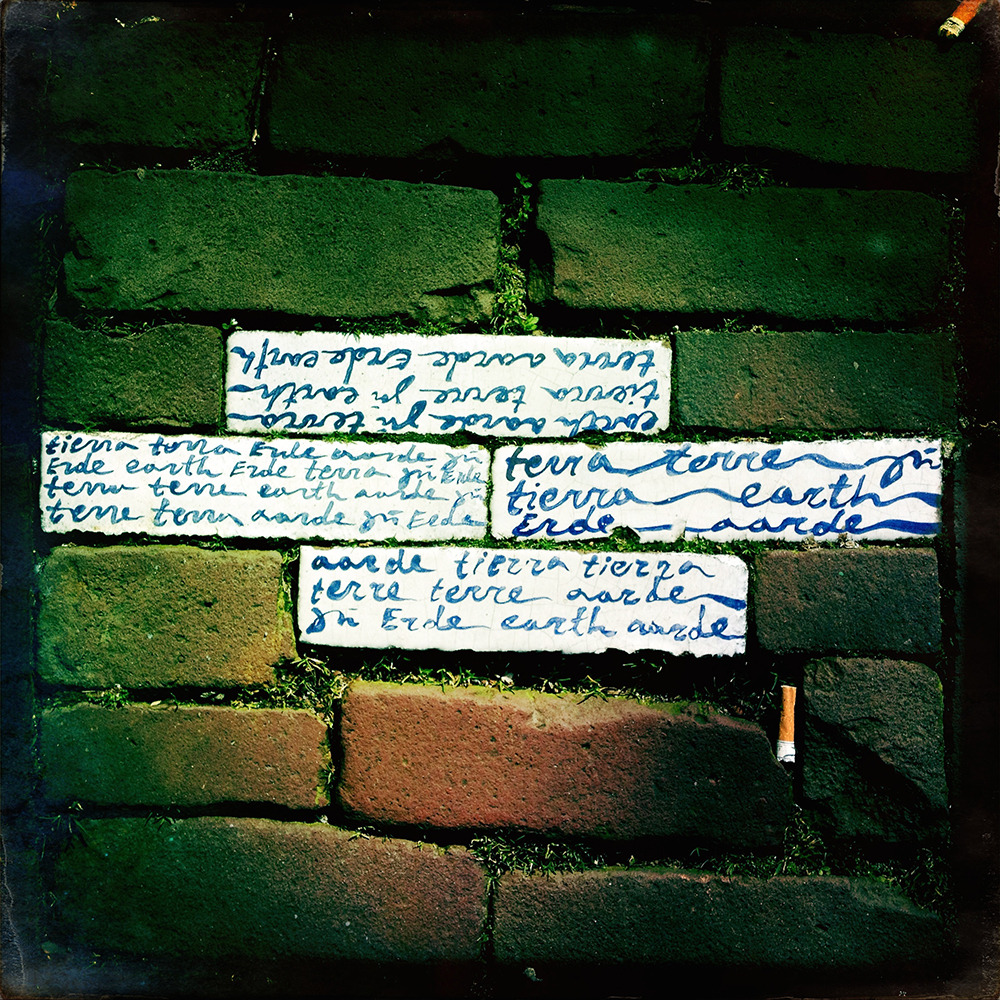 earth aarde terra
tierra terre earth
terra aarde Erde earth
tierra terra Erde aarde
Erde earth Erde terra Erde
terra terre earth aarde
terre terra aarde Eerde
terra terre
tierra earth
Erde aarde
aarde tierra tierra
terre terre aarde
Erde earth aarde